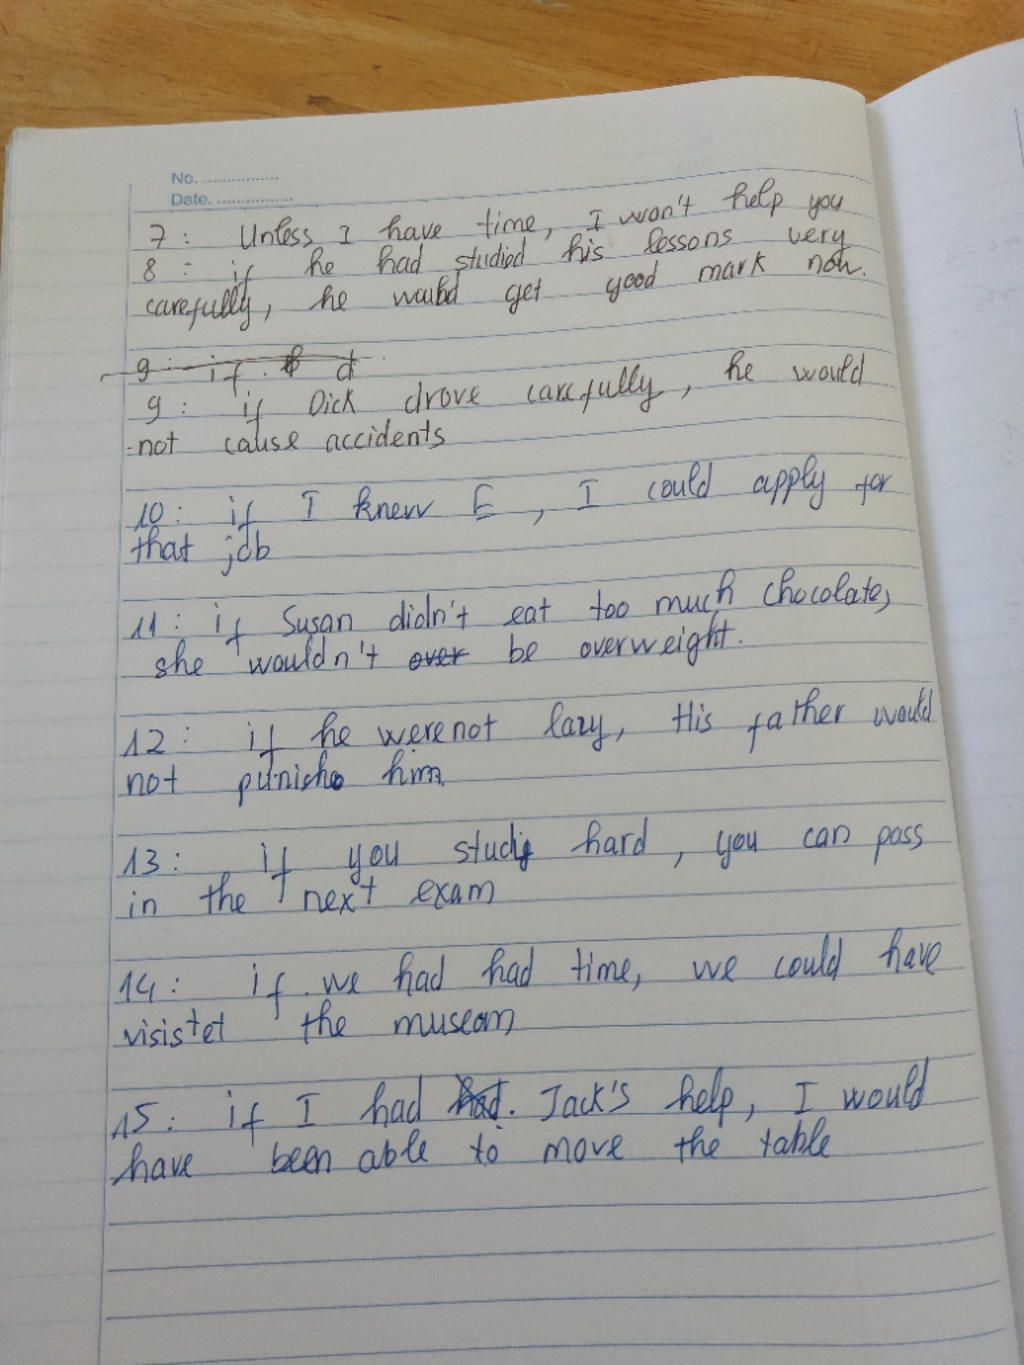 No. ................
Date. ................
7 : Unless I have time, I won't help you
8 : if he had studied his lessons very
carefully, he would get good mark now.
9 : if d
9 : if Dick drove carefully, he would
not cause accidents
10 : if I knew E, I could apply for
that job
11 : if Susan didn't eat too much chocolate,
she wouldn't over be overweight.
12 : if he were not lazy, His father would
not punish him.
13 : if you study hard, you can pass
in the next exam
14 : if we had had time, we could have
visistet the museam
15 : if I had had. Jack's help, I would
have been able to move the table